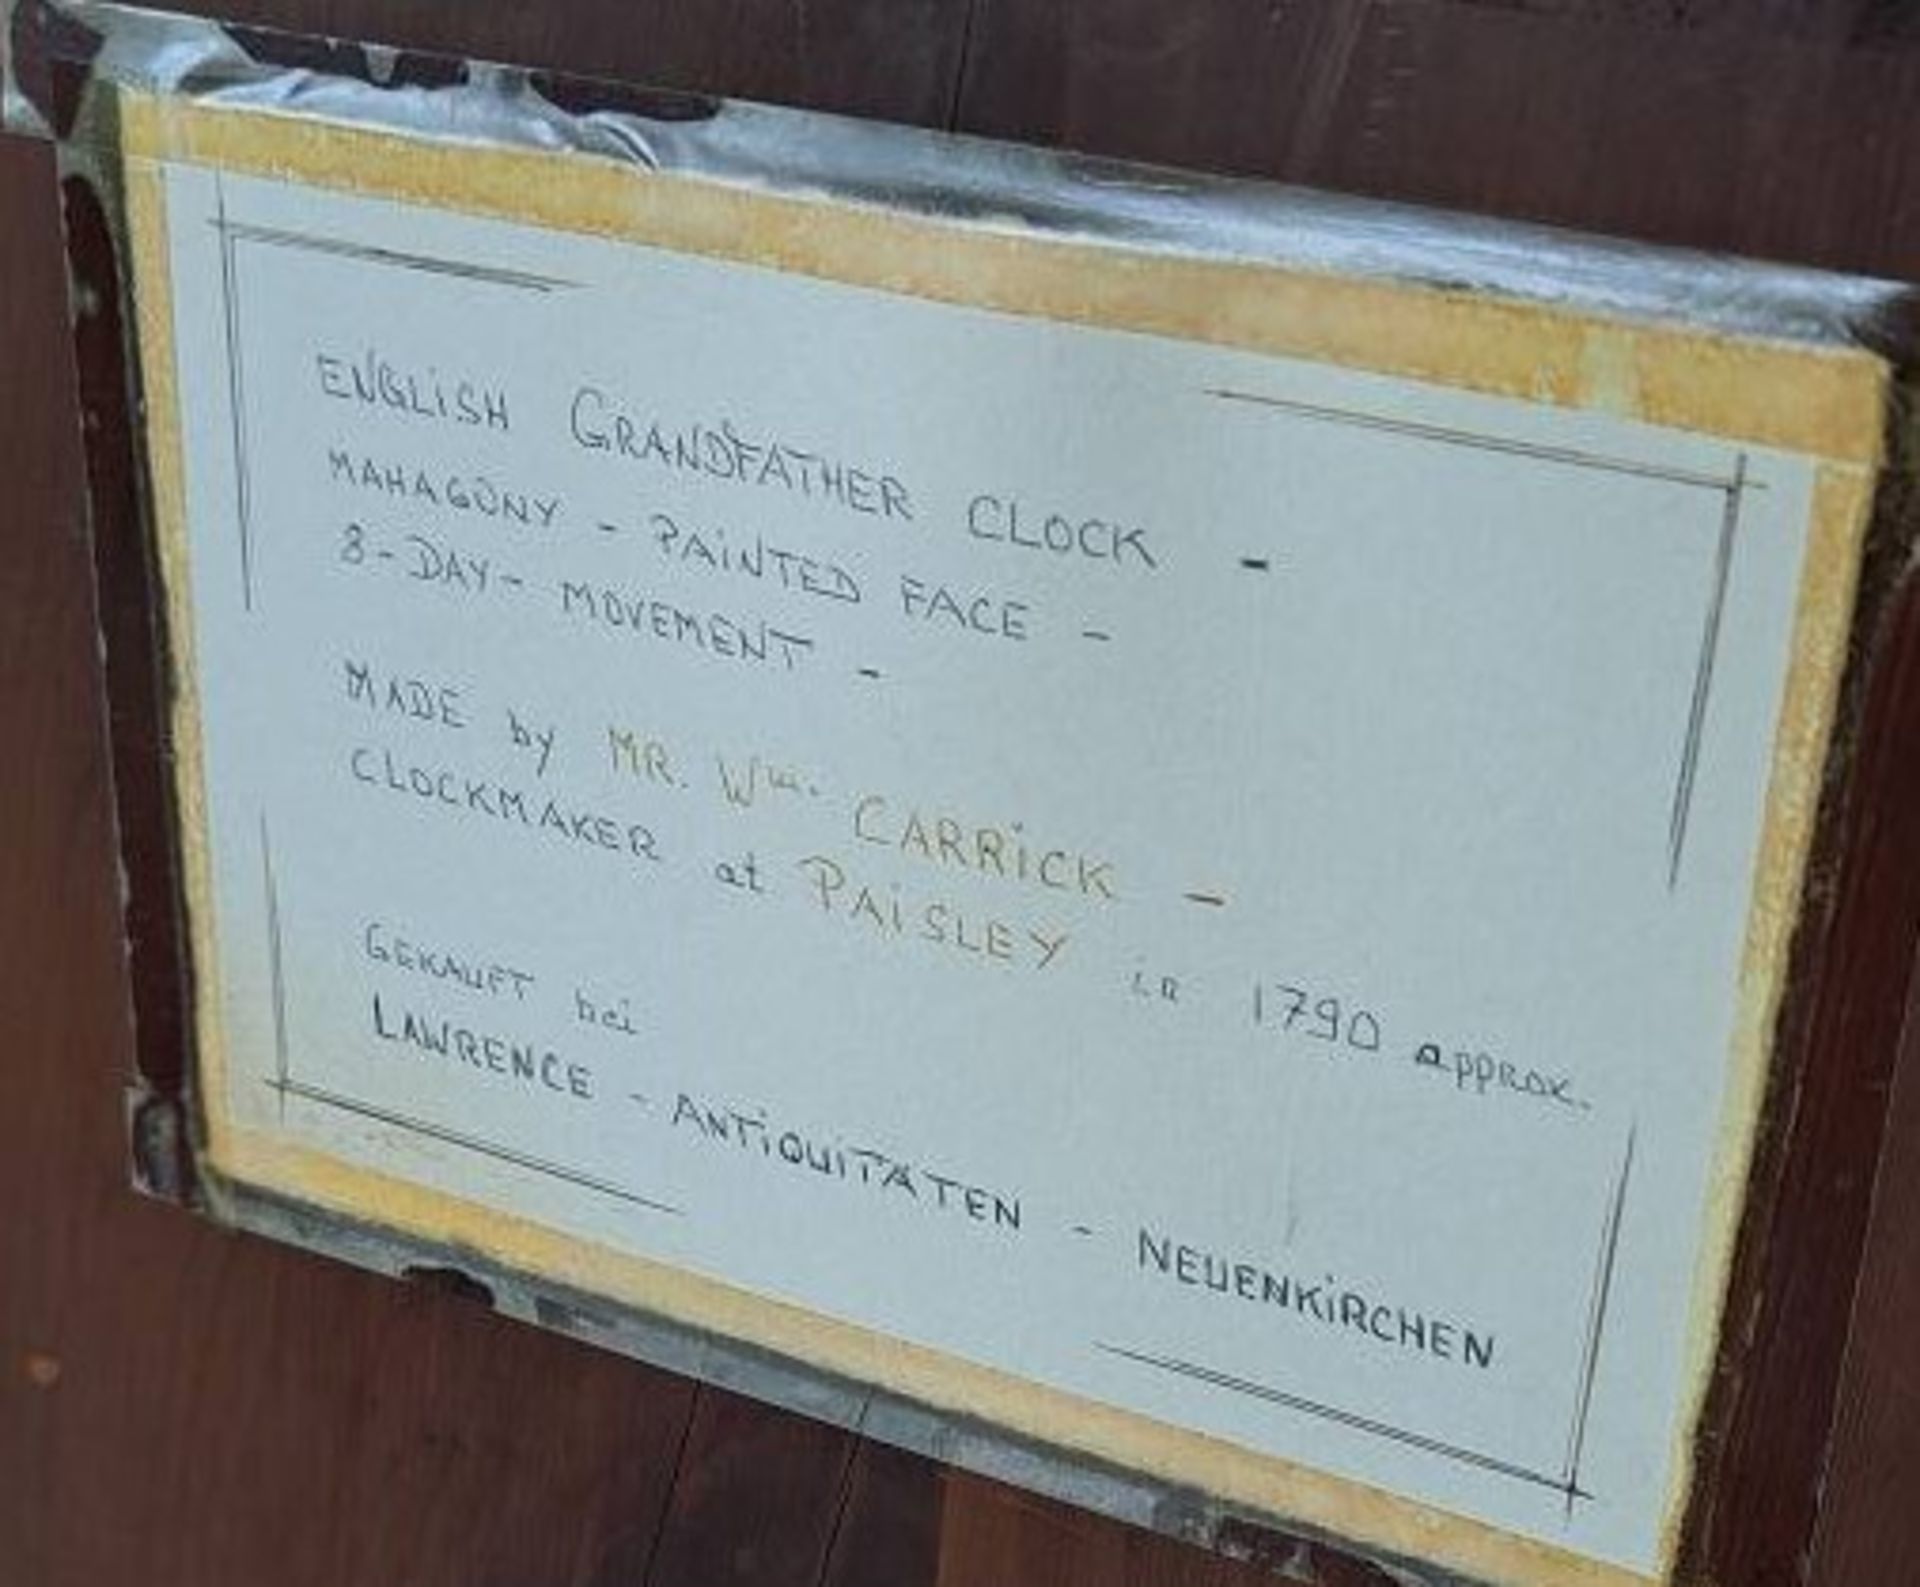 ENGLISH GRANDFATHER CLOCK -
MAHAGONY - PAINTED FACE -
8-DAY- MOVEMENT -
MADE by MR. Wm. CARRICK -
CLOCKMAKER at PAISLEY in 1790 approx.
GEKAUFT bei
LAWRENCE - ANTIQUITÄTEN - NEUENKIRCHEN